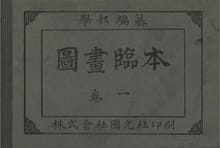 學部編纂
圖畫臨本
卷一
株式會社國光社印刷